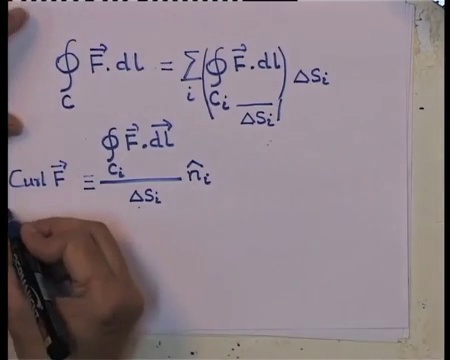 ∮_C F⃗.dl = Σ_i (∮_Ci F⃗.dl / ΔSi) ΔSi
Curl F⃗ ≡ ∮_Ci F⃗.dl⃗ / ΔSi n̂i